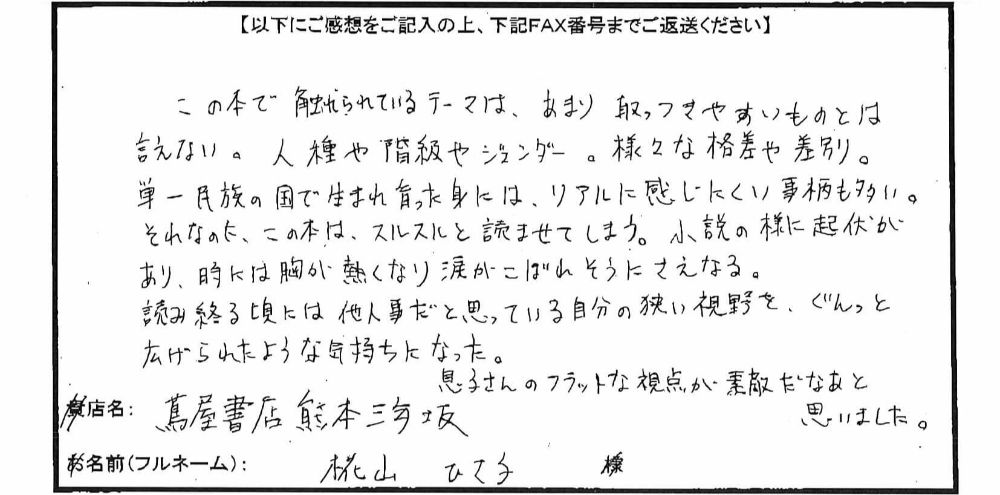 【以下にご感想をご記入の上、下記FAX番号までご返送ください】
この本で触れられているテーマは、あまり取っつきやすいものとは
言えない。人種や階級やジェンダー。様々な格差や差別。
単一民族の国で生まれ育った身には、リアルに感じにくい事柄も多い。
それなのに、この本は、スルスルと読ませてしまう。小説の様に起伏が
あり、時には胸が熱くなり涙がこぼれそうにさえなる。
読み終る頃には他人事だと思っている自分の狭い視野を、ぐんっと
広げられたような気持ちになった。
息子さんのフラットな視点が素敵だなあと
思いました。
貴店名: 蔦屋書店熊本三年坂
お名前(フルネーム): 椛山 ひさ子 様